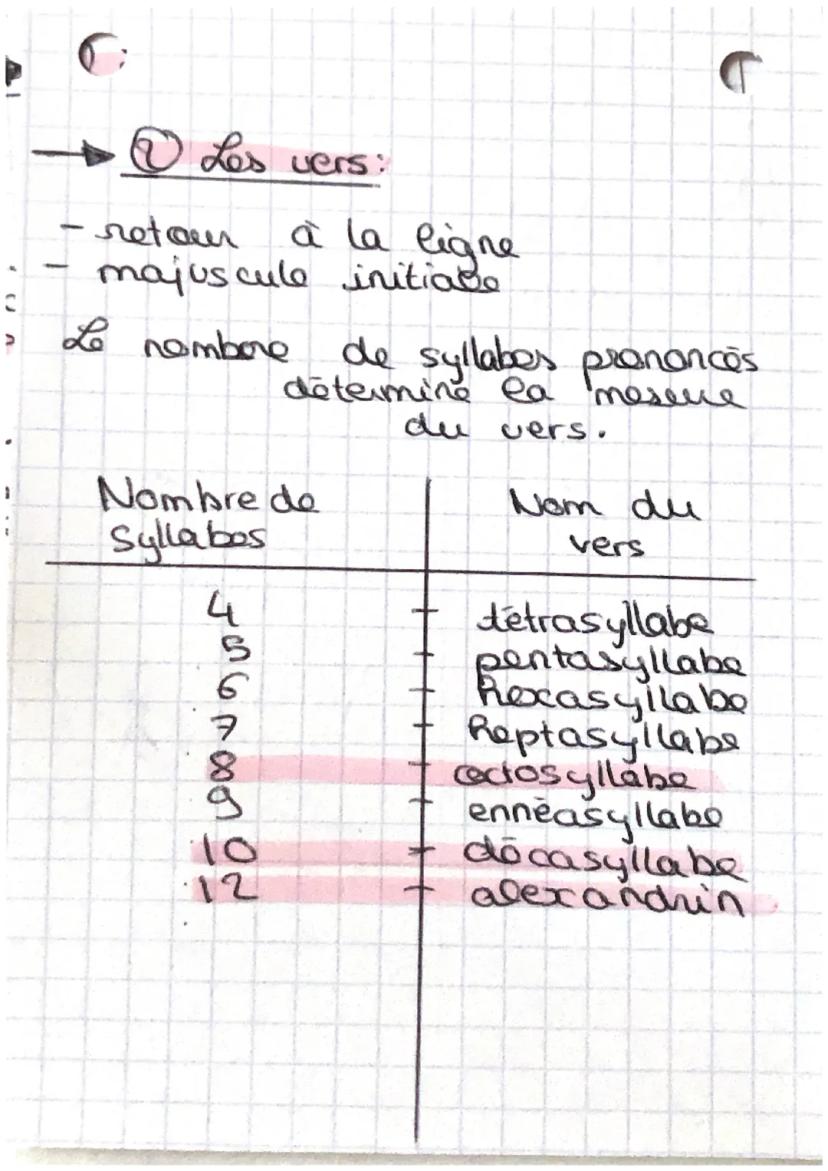 ② Les vers:
- retour à la ligne
- majuscule initiale
Le nombre de syllabes prononcés
détermine la mesure
du vers.
Nombre de Syllabes | Nom du vers
4 | tétrasyllabe
5 | pentasyllabe
6 | hexasyllabe
7 | heptasyllabe
8 | octosyllabe
9 | ennéasyllabe
10 | décasyllabe
12 | alexandrin